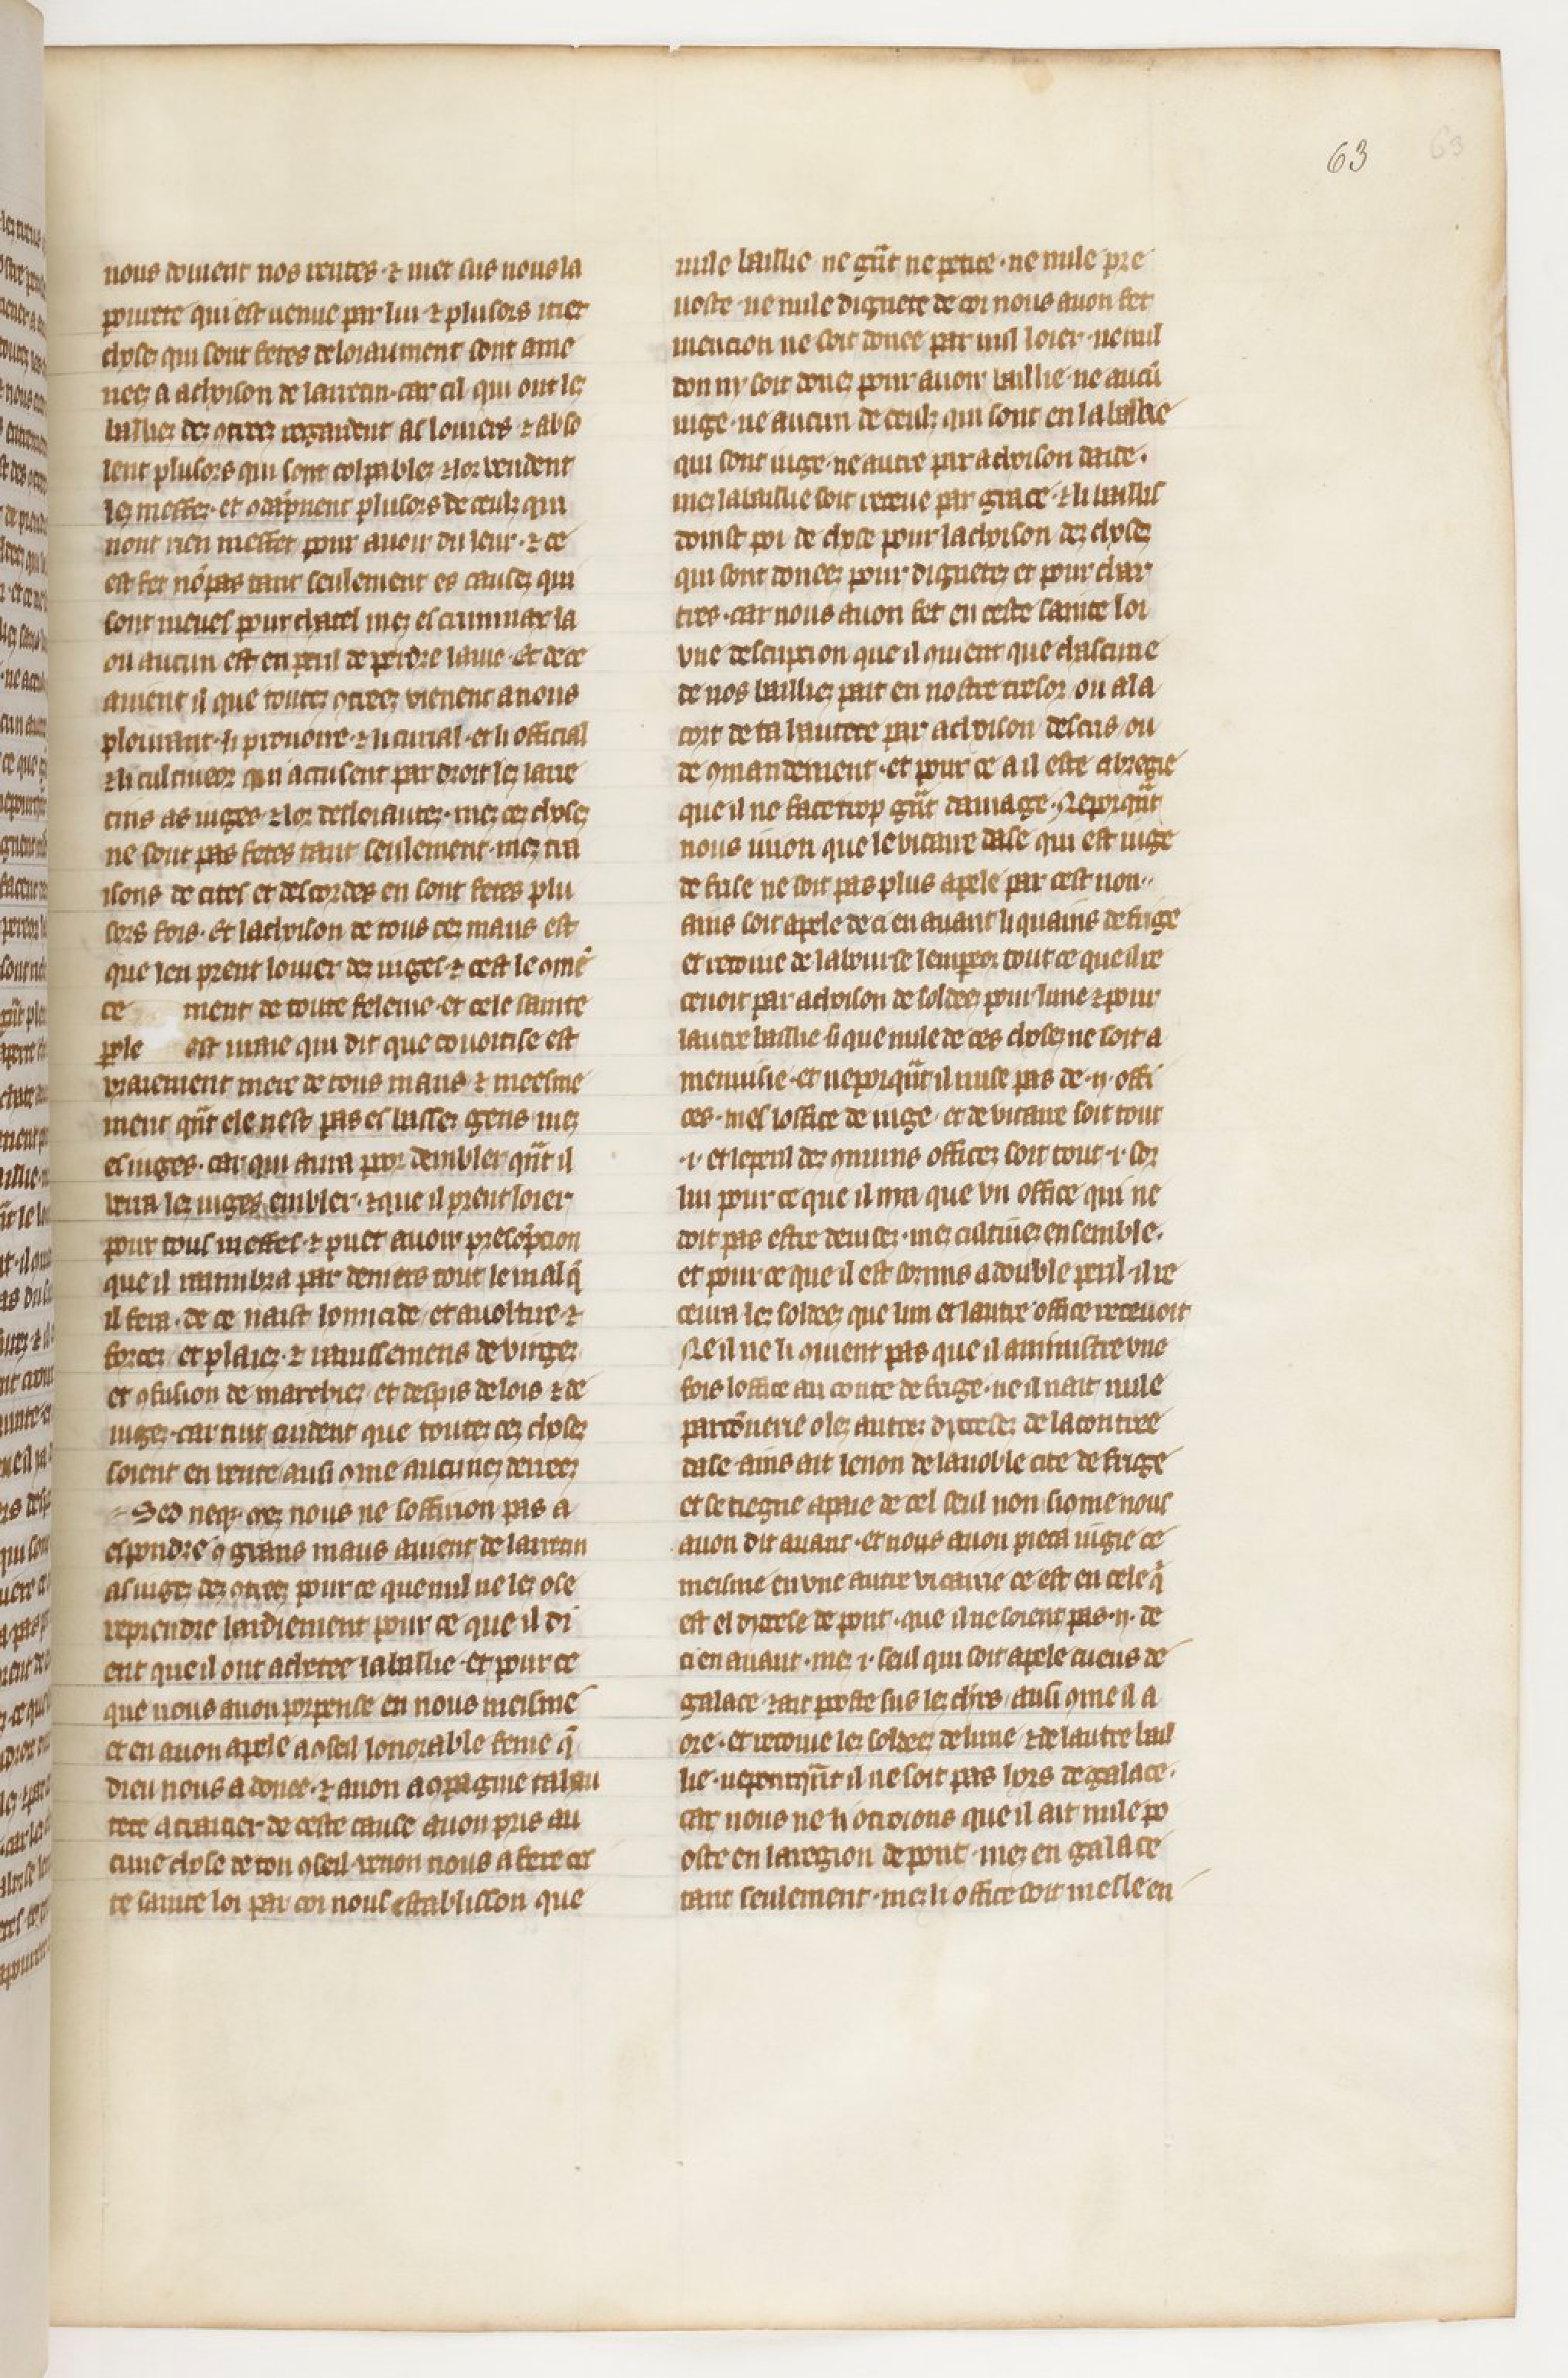 63
nous doiuent nos rentes ⁊ met sus nous la
pourete qui est uenue par lui ⁊ plusors itiex
choses qui sont fetes desloiaument sont ame
nees a achoison de larrecin. car cil qui ont les
baillies des ꝯtrees regardent as louiers ⁊ abso
lent plusors qui sont colpables ⁊ lor vendent
les meffez. et ꝯdāpnent plusors de ceulz qui
nont rien meffet pour auoir du leur. ⁊ ce
est fet nō pas tant seulement es causes qui
sont meues pour chatel mes es criminax la
ou aucun est en peril de perdre la uie. Et de ce
auient il que toutes ꝯtrees vienent a nous
plourant. li prouoire. ⁊ li curial. et li official
⁊ li cultiueor qui acusent par droit les larre
cins as iuges ⁊ lor desloiautez. mes ces choses
ne sont pas fetes tant seulement. mes tra
isons de cites et descordes en sont fetes plu
sors fois. Et lachoison de tous ces maus est
que len prent louier des iuges. ⁊ cest le ꝯmē
ce ment de toute felenie. et cele sainte
ꝑole est uraie qui dit que couoitise est
vraiement mere de tous maus ⁊ meesme
ment qn̄t ele nest pas es basses gens mes
es iuges. car qui aura poor dembler qn̄t il
verra les iuges embler. ⁊ que il prent loier
pour tous meffes. ⁊ puet auoir presōpcion
que il raimbra par deniers tout le mal q̄
il fera. de ce naist homicide et auoltire ⁊
forces et plaies. ⁊ rauissemens de virges
et ꝯfusion de marchies et despis de lois ⁊ de
iuges. car tuit cuident que toutes ces choses
soient en vente ausi ꝯme aucunes denrees
Sed neqꝫ. nous ne soffiron pas a
espondre q̄ grans maus auient de larrecin
as iuges des ꝯtrees pour ce que nul ne les ose
reprendre hardiement pour ce que il di
ent que il ont achetee la baillie. et pour ce
que nous auon porpense en nous meisme
et en auon apele a ꝯseil lonorable feme q̄
dieu nous a donee. ⁊ auon a ꝯpagnie ta hau
tece a traitier de ceste cause auon pris au
cune chose de ton ꝯseil. venon nous a fere ces
te sainte loi par coi nous establisson que
nule baillie ne gn̄t ne petite. ne nule pre
uoste ne nule dignete de coi nous auon fet
mencion ne soit donee par nul loier. ne nul
don ny soit dones pour auoir baillie. ne aucū
iuge. ne aucun de ceulz qui sont en la baillie
qui sont iuge. ne autre par achoison daide.
mes la baillie soit receue par grace. ⁊ li baillis
doinst poi de chose pour lachoison des choses
qui sont donees pour dignetes et pour char
tres. car nous auon fet en ceste sainte loi
vne descripcion que il ꝯuient que chascune
de nos baillies pait en nostre tresor ou a la
cort de ta hautece par achoison descris ou
de ꝯmandement. et pour ce a il este abregie
que il ne face trop gn̄t damage. Neporqn̄t
nous uiron que le vicaire dase qui est iuge
de frise ne soit pas plus apele par cest non.
ains soit apele de ci en auant li quains de frige
et recoiue de la bourse lempeor tout ce que il re
ceuoit par achoison de soldees pour lune ⁊ pour
lautre baillie si que nule de ces choses ne soit a
menuisie. et neporqn̄t il nuse pas de .ii. offi
ces. mes loffice de iuge. et de vicaire soit tout
.i. et le peril des ꝯmuns offices soit tout .i. sor
lui pour ce que il nia que vn office qui ne
doit pas estre deuisez. mes cultiuez ensemble.
et pour ce que il est sormis a double peril. il re
ceura les soldees que lun et lautre office receuoit
Ne il ne li ꝯuient pas que il aministre vne
fois loffice au conte de frige. ne il nait nule
parcōnerie o les autres dyoceses de la contree
dase. ains ait le non de la noble cite de frige
et se tiegne apaie de cel seul non si ꝯme nous
auon dit auant. et nous auon pieca iugie ce
meisme en vne autre vicairie ce est en cele q̄
est el dyocese de pont. que il ne soient pas .ii. de
ci en auant. mes .i. seul qui soit apele cuens de
galace. ⁊ ait poste sus les chers ausi ꝯme il a
ore. et recoiue les soldees de lune ⁊ de lautre bail
lie. nepourqn̄t il ne soit pas hors de galace.
car nous ne li otroions que il ait nule po
oste en la region de pont. mes en galace
tant seulement. mes li office soit mesle en